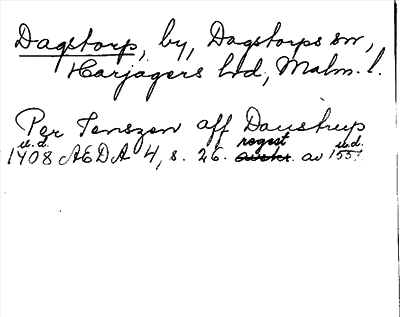 Dagstorp, by, Dagstorps sn,
Harjagers hd, Malm. l.
Per Jenszen aff Daustrup
u.d. regest u.d.
1408 AEDA 4, s. 26. avskr. av 1551